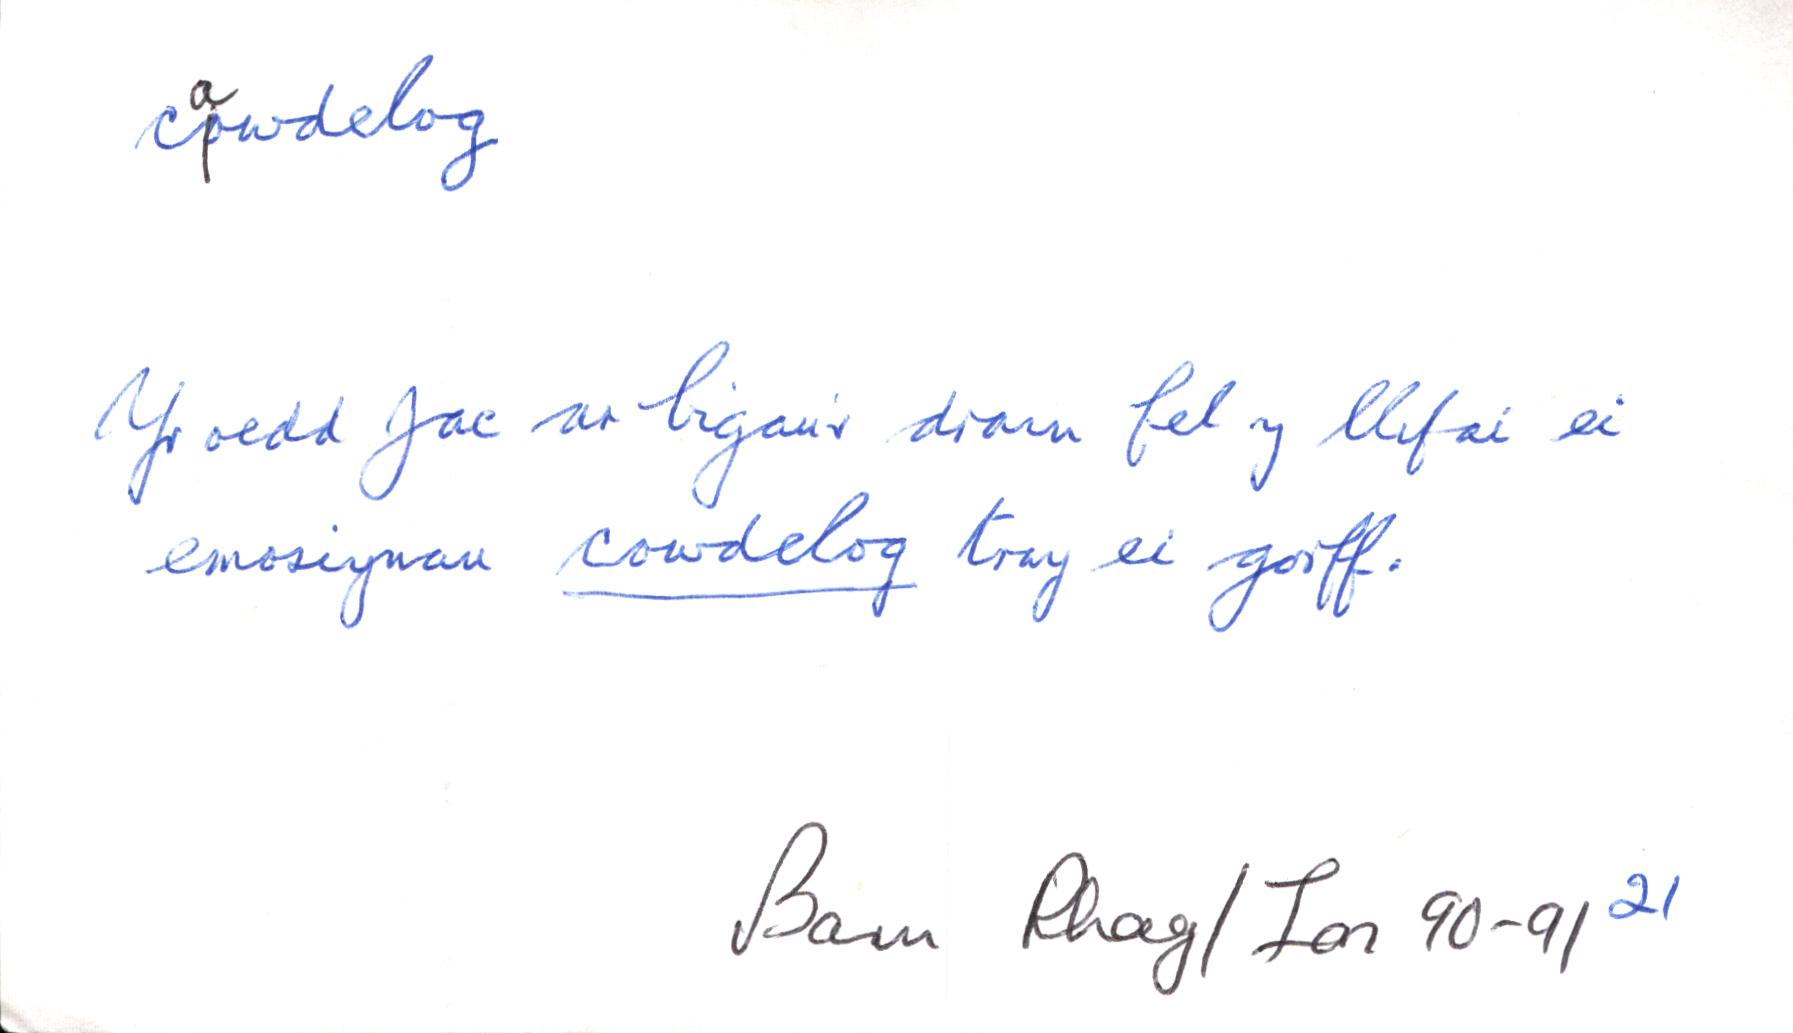 cowdelog
a
Yr oedd Jac ar bigau'r drain fel y llifai ei
emosiynau cowdelog trwy ei gorff.
Barn Rhag/Ion 90-91 21